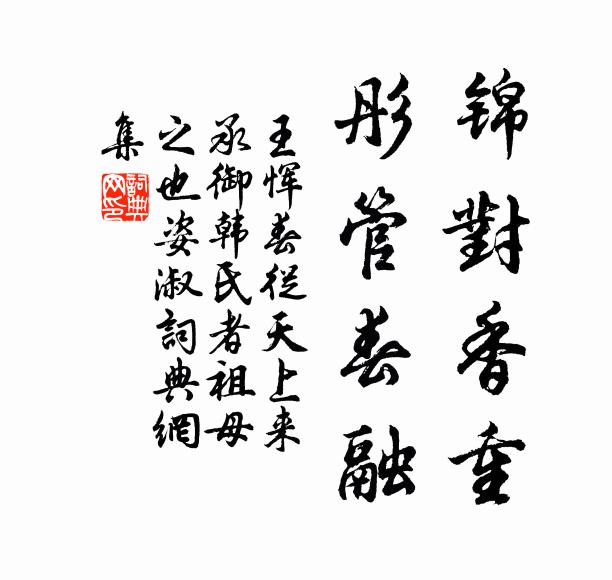 锦對香重
彤管春融
王恽春從天上来
承御韩氏者祖母
之也姿淑詞典網
集
詞典
网印